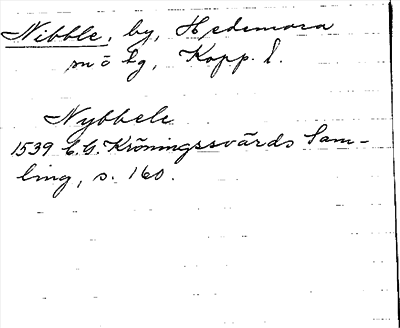 Nibble, by, Hedemora
sn o lg, Kopp. l.
Nybbele
1539 C.G. Kröningssvärds Sam-
ling, s. 160.